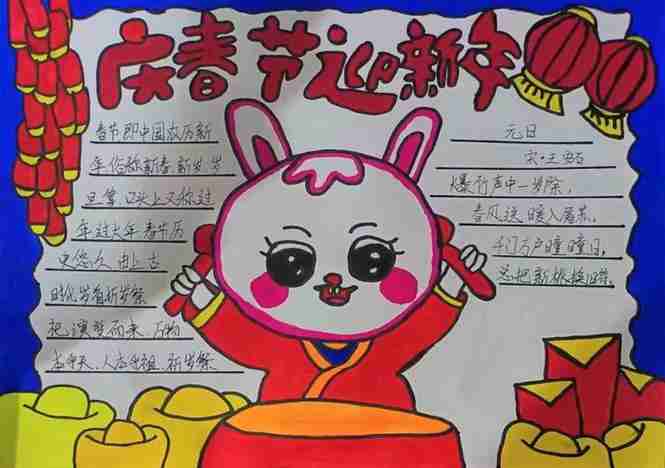 庆春节迎新年
春节即中国农历新
年俗称新春新岁岁
旦等口头上又称过
年过大年春节历
史悠久由上古
时代岁首祈岁祭
祀演变而来.万物
本乎天、人本乎祖.祈岁祭
元日
宋·王安石
爆竹声中一岁除,
春风送暖入屠苏,
千门万户曈曈日,
总把新桃换旧符.